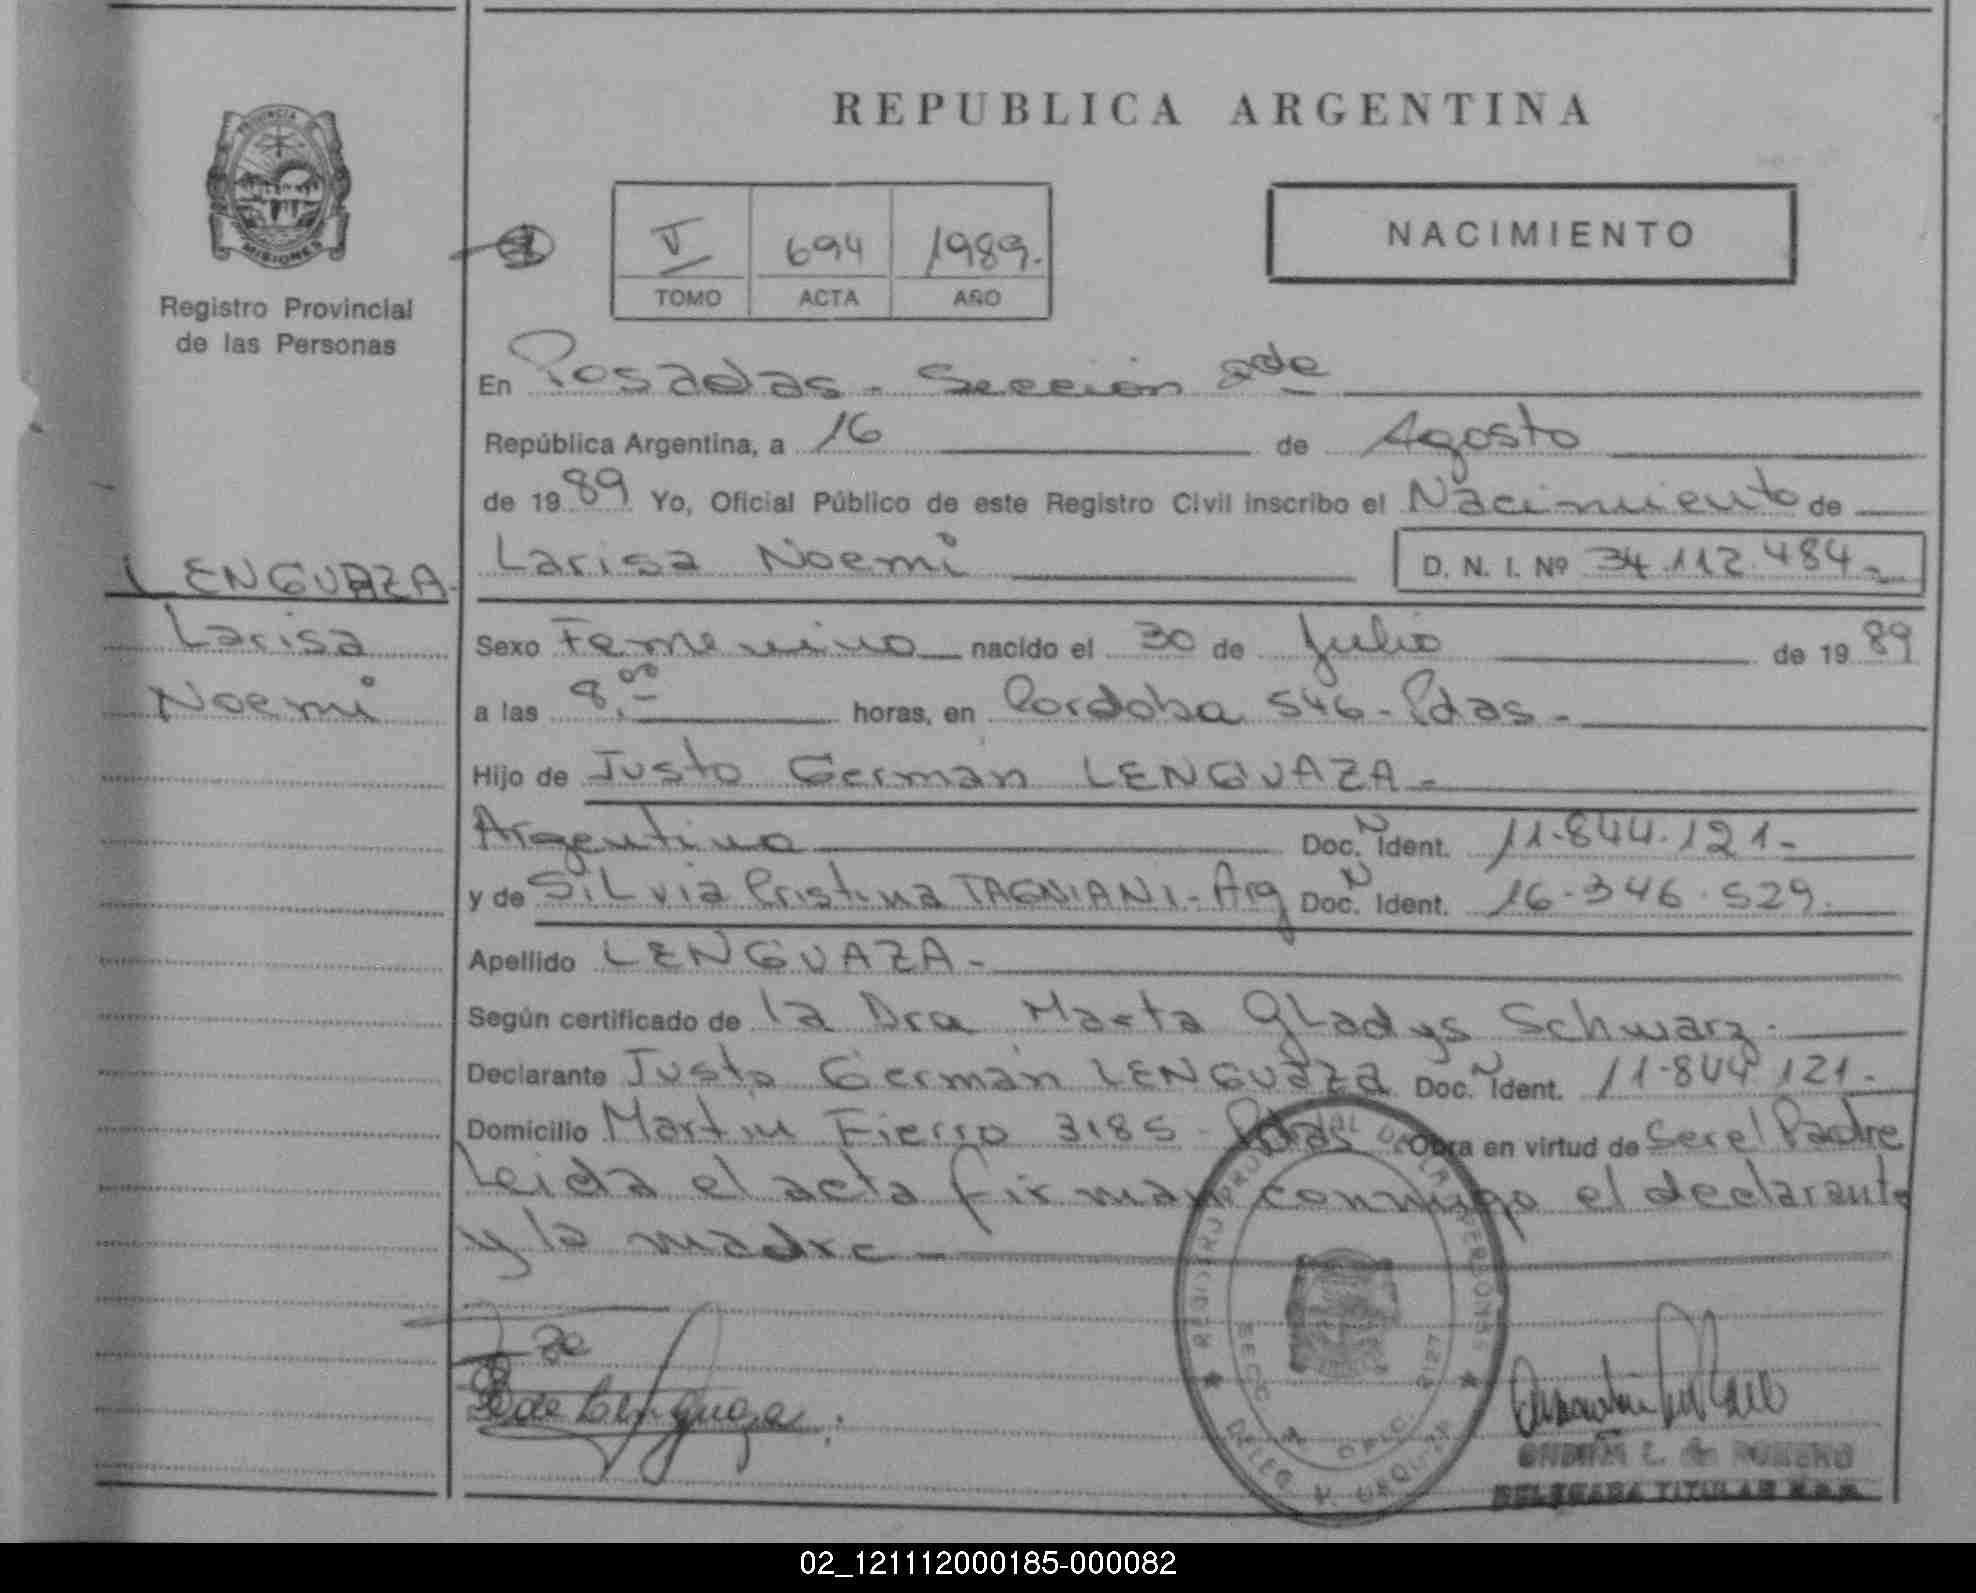 REPUBLICA ARGENTINA
PROVINCIA
MISIONES
Registro Provincial
de las Personas
V 694 1989.
TOMO ACTA AÑO
NACIMIENTO
En Posadas - Sección 2da
República Argentina, a 16 de Agosto
de 1989 Yo, Oficial Público de este Registro Civil inscribo el Nacimiento de
LENGUAZA
Larisa
Noemi
Larisa Noemi D. N. I. Nº 34.112.484-
Sexo Femenino nacido el 30 de Julio de 1989
a las 8,00 horas, en Cordoba 546 - Pdas -
Hijo de Justo Germán LENGUAZA -
Argentino Doc. N Ident. 11-844.121-
y de SiLvia Cristina TAGNIANI - Arg Doc. N Ident. 16-346.529.
Apellido LENGUAZA -
Según certificado de la Dra Marta GLadys Schwarz.
Declarante Justo Germán LENGUAZA Doc. N Ident. 11-844 121-
Domicilio Martin Fierro 3185 - Pdas Obra en virtud de ser el Padre
Leida el acta firman conmigo el declarante
y la madre -
REGISTRO PROVINCIAL DE LAS PERSONAS
DELEG. URQUIZA
SECC OFIC. 2127
de Lenguaza
DELEGADA TITULAR
02_121112000185-000082